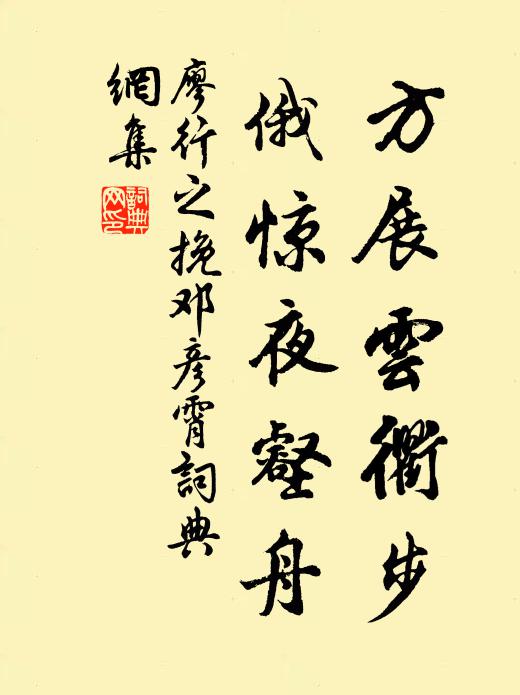 方展雲衢步
俄惊夜壑舟
廖行之挽邓彦霄詞典
網集
詞典
网印